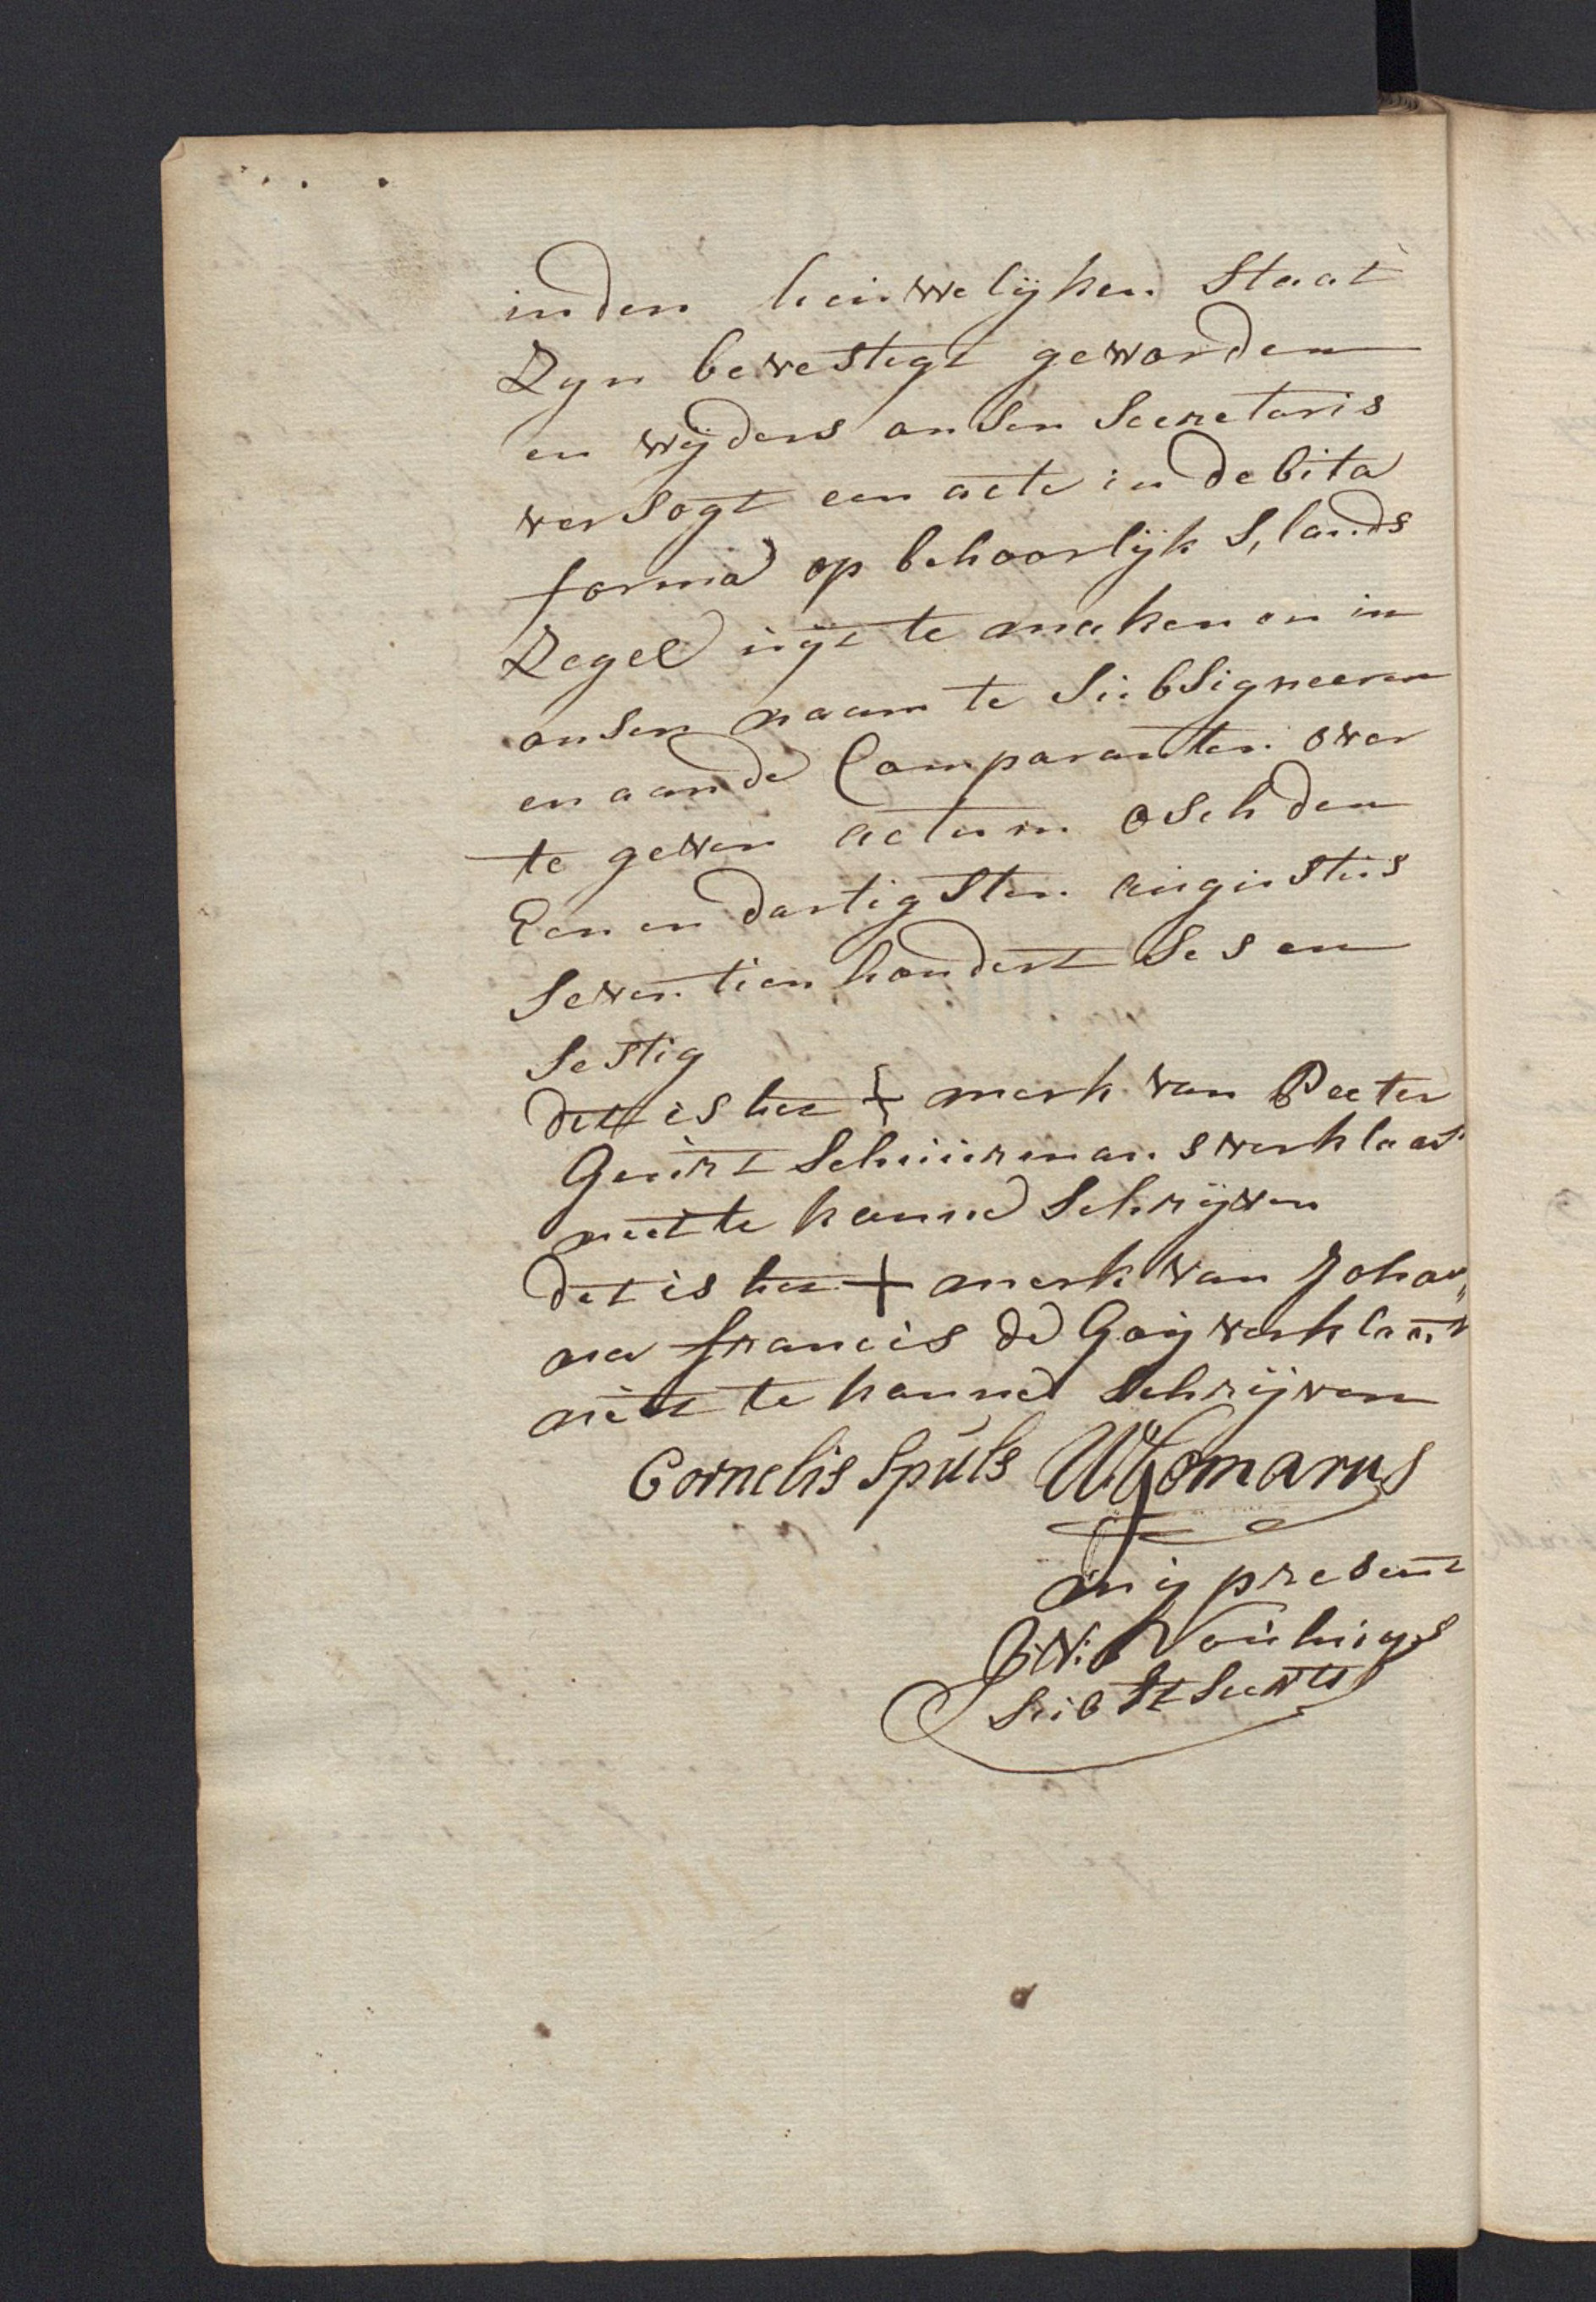 inden heuwelijken Staat
Zyn bevestigt geworden
en wijders onsen Secretaris
versogt een acte in debita
forma op behoorlijk S, lands
Zegel uijt te maken en in
onsen naam te Subsigneeren
en aan de Comparanten over
te geven actum osch den
Een en dartigsten augustus
Seventien hondert Ses en
Sestig
dit is het + merk van Peeter
Geurt Schuurmans verklaart
niet te konne Schrijven
dit is het + merk van Johan„
na francis de Goij verklaart
niet te konne Schrijven
Cornelis Spuls W Gomarus
mij present
Subst Secrts